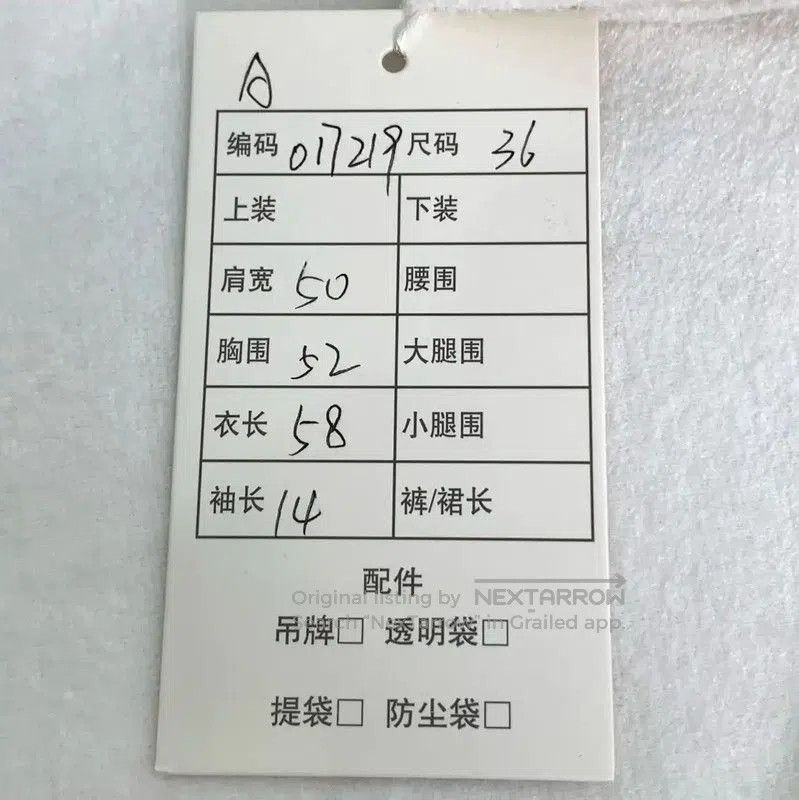 A
编码 017219 尺码 36
上装 下装
肩宽 50 腰围
胸围 52 大腿围
衣长 58 小腿围
袖长 14 裤/裙长
配件
Original listing by NEXTARROW
吊牌□ 透明袋□
Search "NexTarrow" in Grailed app.
提袋□ 防尘袋□